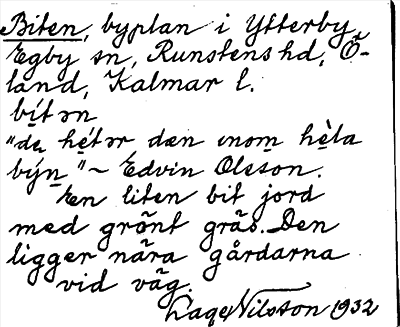 Biten, byplan i Ytterby
Egby sn, Runstens hd, Ö-
land, Kalmar l.
bítən
"de hétər dæn ınom hèla
býn" ~ Edvin Olsson.
En liten bit jord
med grönt gräs. Den
ligger nära gårdarna
vid väg.
Lage Nilsson 1932